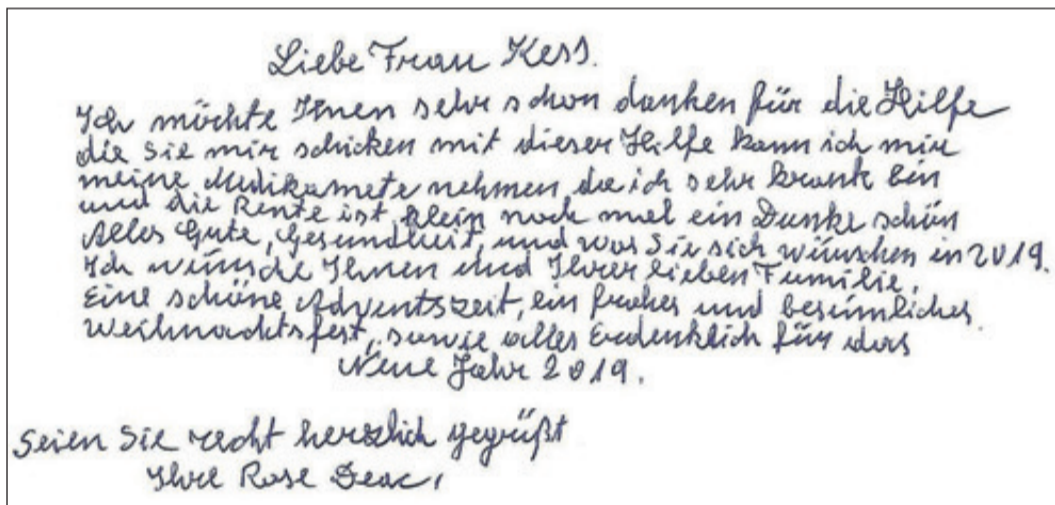 Liebe Frau Kess.
Ich möchte Ihnen sehr schon danken für die Hilfe
die Sie mir schicken mit dieser Hilfe kann ich mir
meine Medikamete nehmen da ich sehr krank bin
und die Rente ist klein noch mal ein Danke schön
Alles Gute, Gesundheit, und was Sie sich wünschen in 2019.
Ich wünsche Ihnen und Ihrer lieben Familie.
Eine schöne Adventszeit, ein frohes und besinnliches
Weihnachtsfest, sowie alles Erdenklich für das
Neue Jahr 2019.
Seien Sie recht herzlich gegrüßt
Ihre Rose Deac,